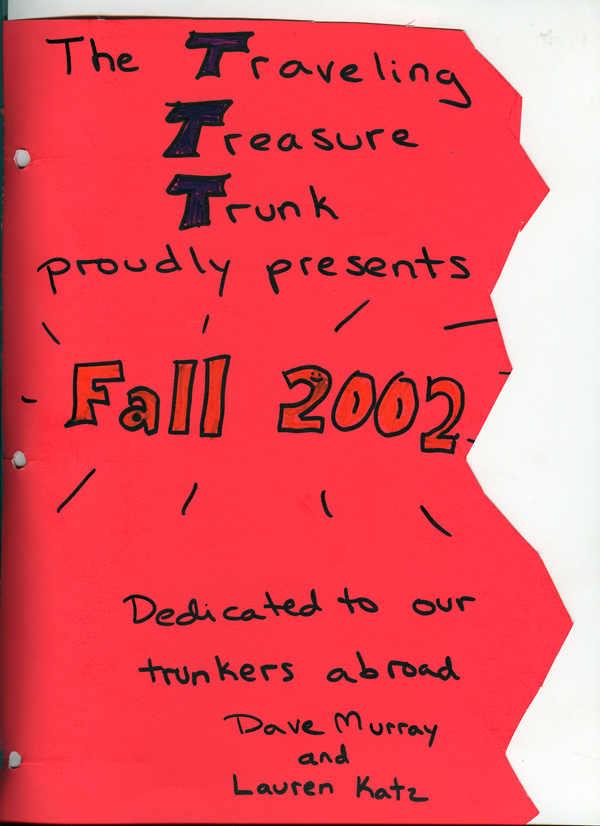 The Traveling
Treasure
Trunk
proudly presents
Fall 2002
Dedicated to our
trunkers abroad
Dave Murray
and
Lauren Katz